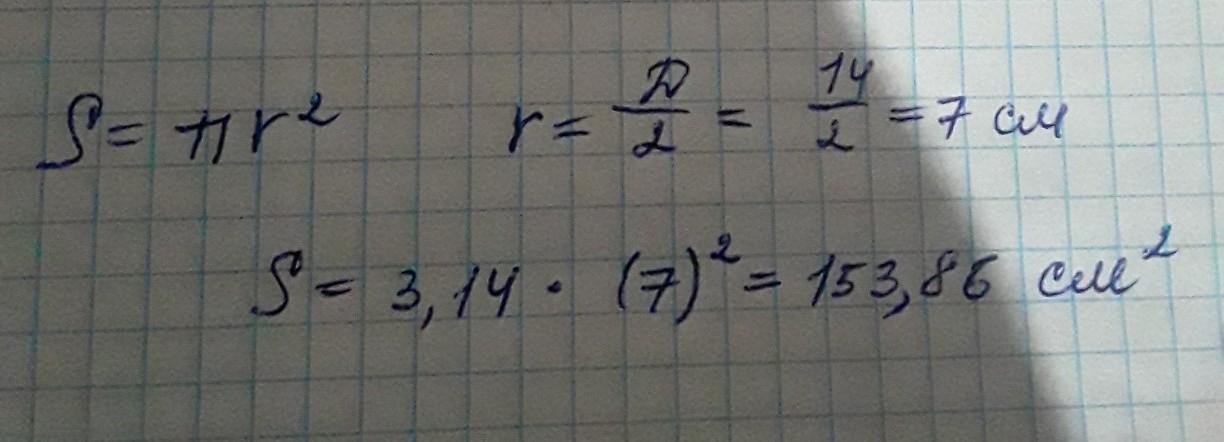 S = πr² r = Д/2 = 14/2 = 7 см
S = 3,14 · (7)² = 153,86 см²